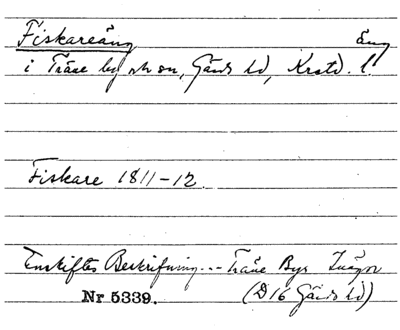 Fiskareäng Äng
i Träne by och sn, Gärds hd, Krstd. l.
Fiskare 1811-12
Enskiftes Beskrifning... Träne Bys Inägor
Nr 5339. (D16 Gärds hd)